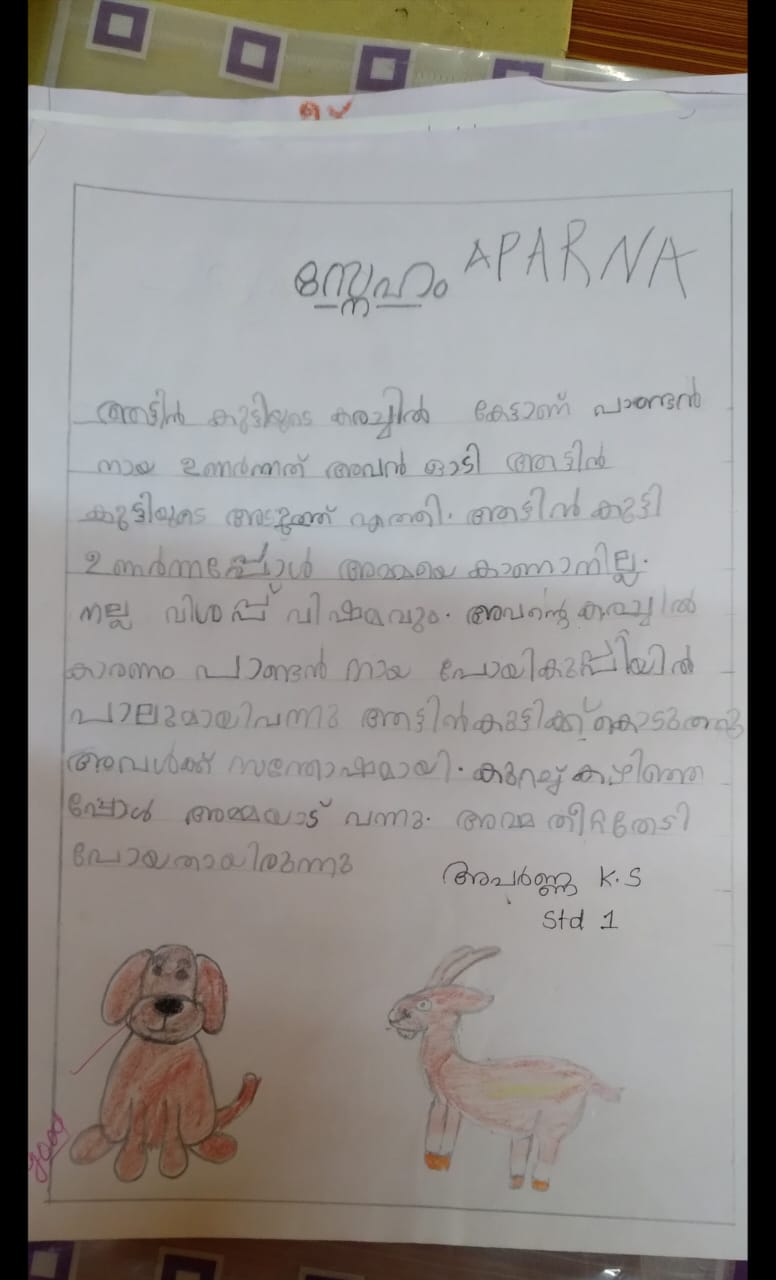 സ്നേഹം APARNA
ആട്ടിൻ കുട്ടിയുടെ കരച്ചിൽ കേട്ടാണ് പാണ്ടൻ
നായ ഉണർന്നത് അവൻ ഓടി ആട്ടിൻ
കുട്ടിയുടെ അടുത്ത് എത്തി. ആട്ടിൻ കുട്ടി
ഉണർന്നപ്പോൾ അമ്മയെ കാണാനില്ല.
നല്ല വിശപ്പ് വിഷമവും. അവന്റെ കരച്ചിൽ
കാരണം പാണ്ടൻ നായ പോയികുപ്പിയിൽ
പാലുമായിവന്നു ആട്ടിൻകുട്ടിക്ക് കൊടുത്തു
അവൾക്ക് സന്തോഷമായി. കുറച്ച് കഴിഞ്ഞ
പ്പോൾ അമ്മയാട് വന്നു. അമ്മ തീറ്റതേടി
പോയതായിരുന്നു
അപർണ്ണ K.S
Std 1
good